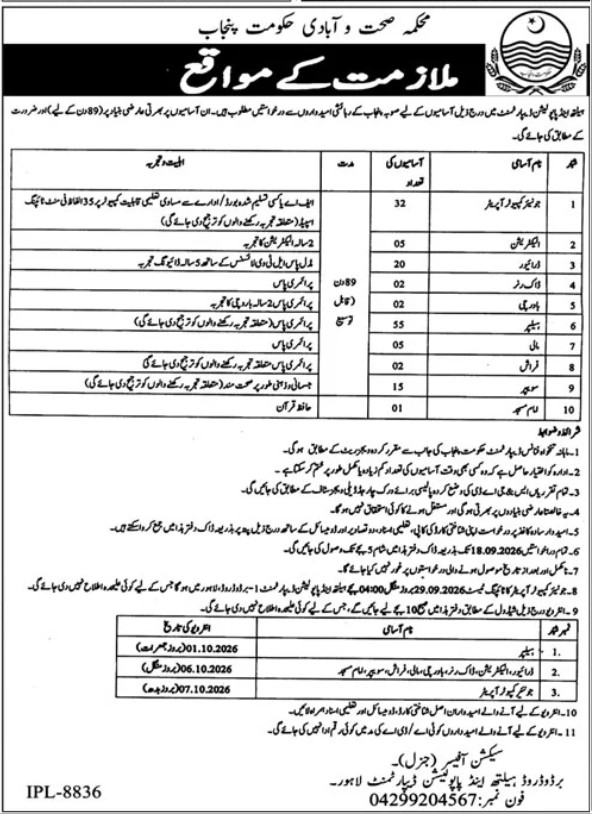 محکمہ صحت و آبادی حکومت پنجاب
ملازمت کے مواقع
ہیلتھ اینڈ پاپولیشن ڈیپارٹمنٹ میں درج ذیل آسامیوں کے لیے صوبہ پنجاب کے رہائشی امیدواروں سے درخواستیں مطلوب ہیں۔ ان آسامیوں پر بھرتی عارضی بنیاد پر (89 دن کے لیے) اور ضرورت
کے مطابق کی جائے گی۔
شمار نام آسامی آسامیوں کی تعداد مدت اہلیت و تجربہ
1 جونیئر کمپیوٹر آپریٹر 32 ایف اے یا کسی تسلیم شدہ بورڈ/ ادارے سے مساوی تعلیمی قابلیت کمپیوٹر پر 35 الفاظ فی منٹ ٹائپنگ
اسپیڈ (متعلقہ تجربہ رکھنے والوں کو ترجیح دی جائے گی)
2 الیکٹریشن 05 2 سالہ الیکٹریشن کا تجربہ
3 ڈرائیور 20 مڈل پاس ایل ٹی وی لائسنس کے ساتھ 5 سالہ ڈرائیونگ تجربہ
4 ڈاک رنر 02 پرائمری پاس
5 باورچی 02 پرائمری پاس 2 سالہ باورچی کا تجربہ
6 ہیلپر 55 پرائمری پاس (متعلقہ تجربہ رکھنے والوں کو ترجیح دی جائے گی)
7 مالی 05 پرائمری پاس
8 فراش 02 پرائمری پاس (متعلقہ تجربہ رکھنے والوں کو ترجیح دی جائے گی)
9 سویپر 15 جسمانی و ذہنی طور پر صحت مند (متعلقہ تجربہ رکھنے والوں کو ترجیح دی جائے گی)
10 امام مسجد 01 حافظ قرآن
89 دن
(قابل
توسیع)
شرائط و ضوابط
1- ماہانہ تنخواہ فنانس ڈیپارٹمنٹ حکومت پنجاب کی جانب سے مقرر کردہ ویجز ریٹ کے مطابق ہوگی۔
2- ادارہ کو اختیار حاصل ہے کہ وہ کسی بھی وقت آسامیوں کی تعداد کم زیادہ یا مکمل طور پر ختم کر سکتا ہے۔
3- تمام تقرریاں ایس اینڈ جی اے ڈی کی وضع کردہ پالیسی برائے ورک چارجڈ/ڈیلی ویجز سٹاف کے مطابق کی جائیں گی۔
4- یہ خالصتاً عارضی بنیادوں پر بھرتی ہوگی اور مستقل ہونے کا کوئی استحقاق نہیں ہوگا۔
5- امیدوار سادہ کاغذ پر درخواست اپنی شناختی کارڈ کی کاپی، تعلیمی اسناد، دو تصاویر اور ڈومیسائل کے ساتھ درج ذیل پتہ پر بذریعہ ڈاک دفتر ہذا میں جمع کروا سکتے ہیں۔
6- تمام درخواستیں 18.09.2026 تک بذریعہ ڈاک دفتر ہذا میں شام 5 بجے تک وصول کی جائیں گی۔
7- نامکمل اور بعد از تاریخ موصول ہونے والی درخواستوں پر غور نہیں کیا جائے گا۔
8- جونیئر کمپیوٹر آپریٹر کا ٹائپنگ ٹیسٹ 29.09.2026 بروز منگل 04:00 بجے ہیلتھ اینڈ پاپولیشن ڈیپارٹمنٹ 1- برڈوڈ روڈ، لاہور میں ہوگا جس کے لیے کوئی علیحدہ اطلاع نہیں دی جائے گی۔
9- انٹرویو کے لیے درج ذیل شیڈول کے مطابق دفتر ہذا میں صبح 10 بجے لیے جائیں گے، جس کے لیے کوئی علیحدہ اطلاع نہیں دی جائے گی۔
نمبر شمار نام آسامی انٹرویو کی تاریخ
1. ہیلپر 01.10.2026 (بروز جمعرات)
2. ڈرائیور، الیکٹریشن، ڈاک رنر، باورچی، مالی، فراش، سویپر، امام مسجد 06.10.2026 (بروز منگل)
3. جونیئر کمپیوٹر آپریٹر 07.10.2026 (بروز بدھ)
10- انٹرویو کے لیے آنے والے امیدواران اصل شناختی کارڈ، ڈومیسائل اور تعلیمی اسناد ہمراہ لائیں۔
11- انٹرویو کے لیے آنے والے امیدواروں کو ٹی اے/ڈی اے کی مد میں کوئی رقم ادا نہیں کی جائے گی۔
سیکشن آفیسر (جنرل)۔
برڈوڈ روڈ ہیلتھ اینڈ پاپولیشن ڈیپارٹمنٹ لاہور۔
فون نمبر: 04299204567
IPL-8836